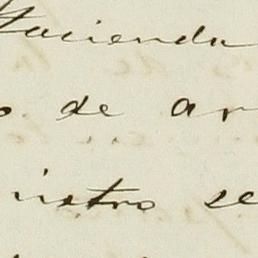 Hacienda
o de ar
nistro se